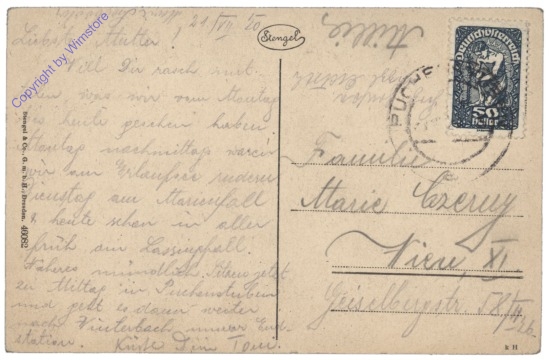 21/VII 20
Liebste Mutter!
Will Dir rasch mit-
was wir vom Montag
bis heute gesehen haben.
Montag nachmittag waren
wir am Erlaufsee rudern
Dienstag am Marienfall
u. heute schon in aller
früh am Lassingfall.
Näheres mündlich. Sitzen jetzt
zu Mittag in Puchenstuben
und geht es dann weiter
nach Winterbach unserer End-
station. Küsst Dich Toni.
Stengel
Stengel & Co., G. m. b. H., Dresden. 46082
Mitzi
Deutschösterreich
20
Heller
PUCHE
Familie
Marie Czerny
Wien, XI.
Geiselbergstr. 58/II
26
R H
Copyright by Wimstore